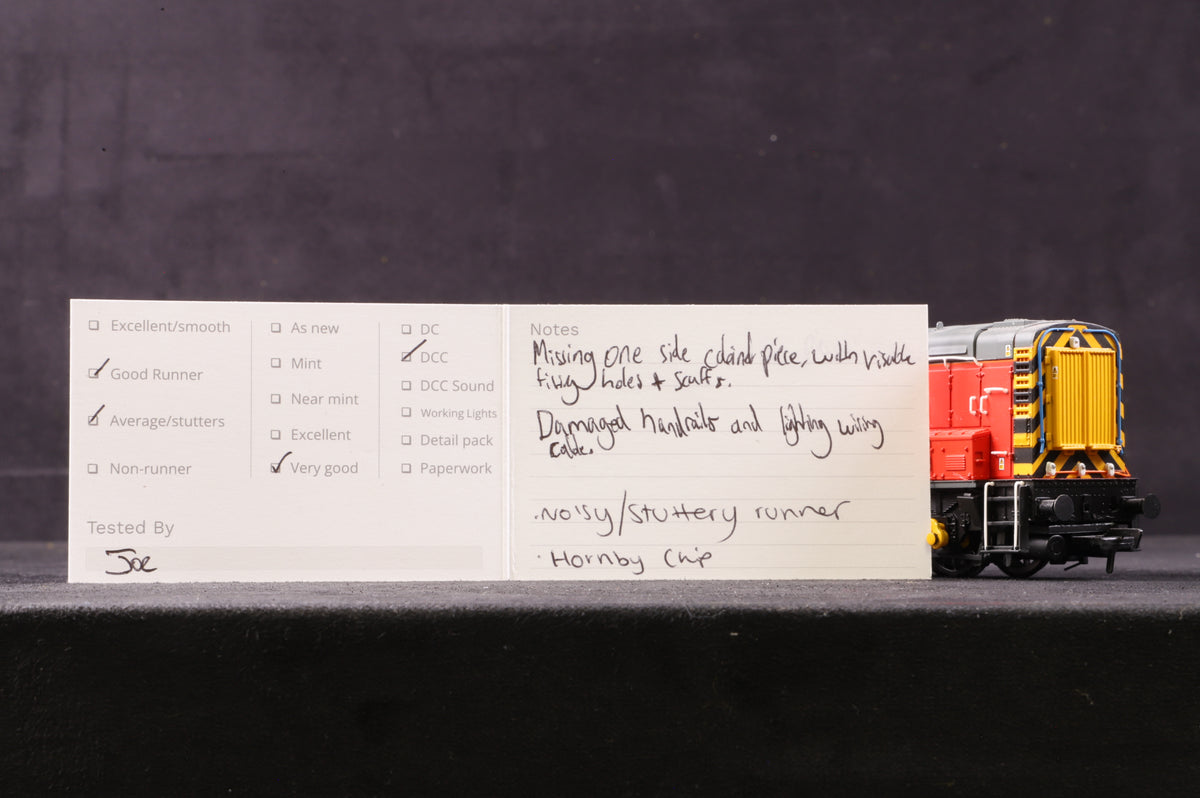 Excellent/smooth
Good Runner
Average/stutters
Non-runner
As new
Mint
Near mint
Excellent
Very good
DC
DCC
DCC Sound
Working Lights
Detail pack
Paperwork
Tested By
Joe
Notes
Missing one side piece, with visable
holes + scuffs.
Damaged handrails and lighting wiring
·Noisy/stuttery runner
·Hornby Chip